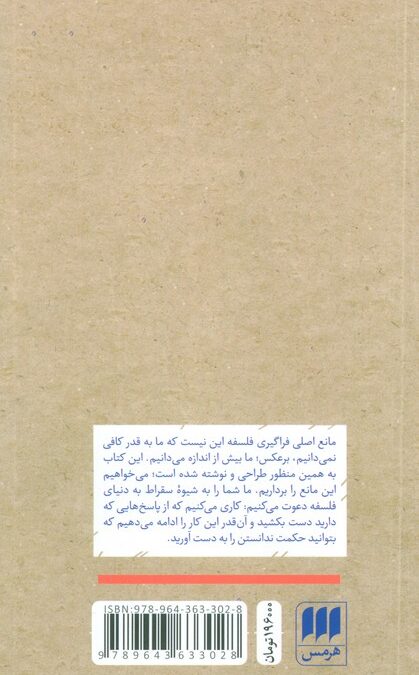 مانع اصلی فراگیری فلسفه این نیست که ما به قدر کافی
نمی‌دانیم، برعکس؛ ما بیش از اندازه می‌دانیم. این کتاب
به همین منظور طراحی و نوشته شده است؛ می‌خواهیم
این مانع را برداریم. ما شما را به شیوهٔ سقراط به دنیای
فلسفه دعوت می‌کنیم: کاری می‌کنیم که از پاسخ‌هایی که
دارید دست بکشید و آن‌قدر این کار را ادامه می‌دهیم که
بتوانید حکمت ندانستن را به دست آورید.
ISBN: 978-964-363-302-8
9 789643 633028
۱۹۶۰۰۰ تومان
هرمس